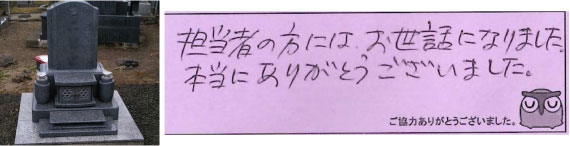 担当者の方には、お世話になりました。
本当にありがとうございました。
ご協力ありがとうございました。